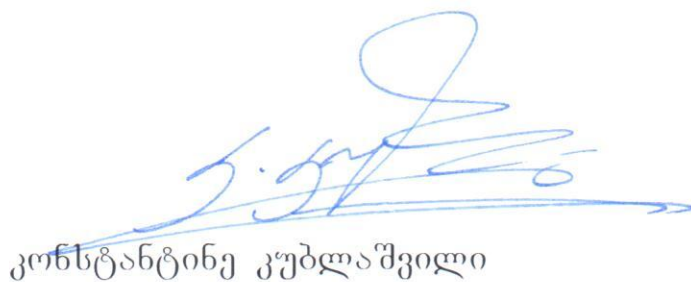 კონსტანტინე კუბლაშვილი